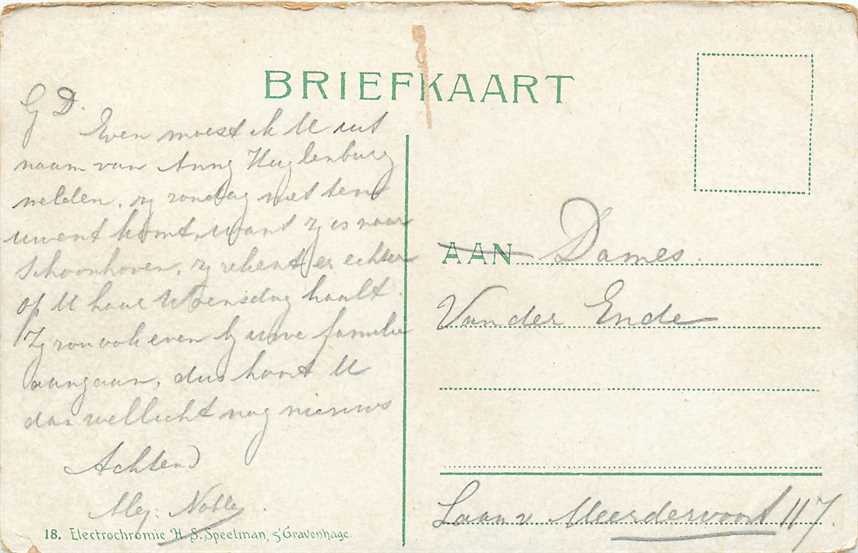 BRIEFKAART
G D.
Even moest ik U uit
naam van Anny Huylenburg
melden, zij zondag niet tens
uwent komt, want zij is naar
Schoonhoven, zij rekent er echter
op U haar Woensdag haalt.
Zij zou ook even bij uwe familie
aangaan, dus hoort U
dan wellicht nog nieuws
Achtend
Mej. Nolle
AAN Dames
Van der Ende
Laan v Meerdervoort 117.
18. Electrochromie H. S. Speelman, 's Gravenhage